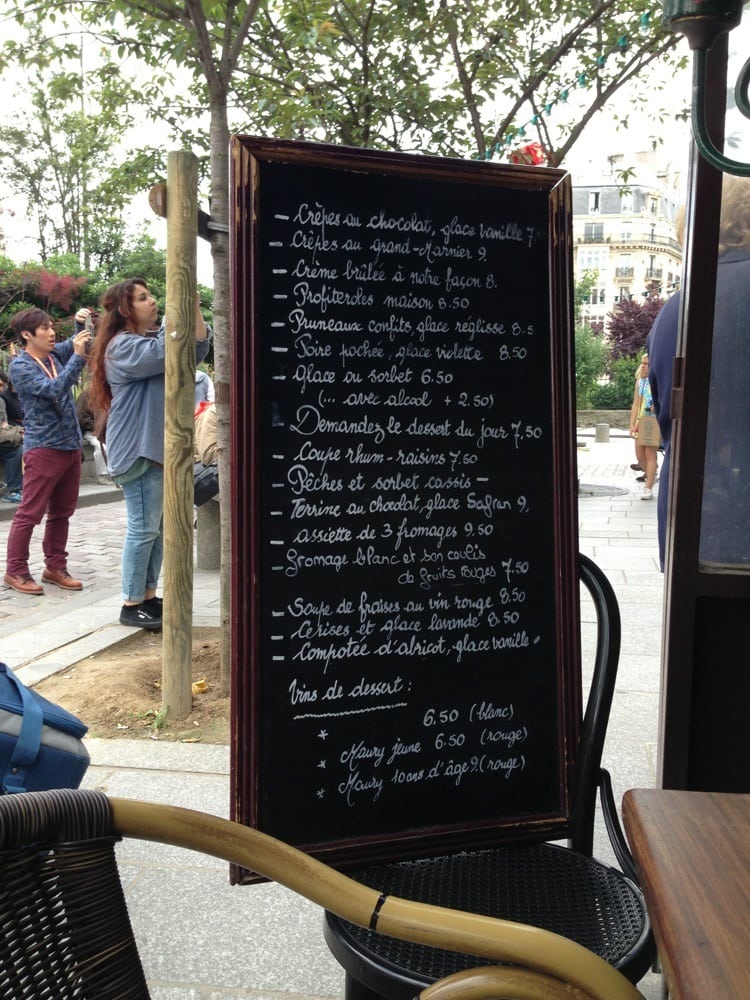 - Crêpes au chocolat, glace vanille 7.
- Crêpes au grand-Marnier 9.
- Crème brûlée à notre façon 8.
- Profiteroles maison 8.50
- Pruneaux confits, glace réglisse 8.5
- Poire pochée, glace violette 8,50
- Glace ou sorbet 6.50
(... avec alcool + 2.50)
Demandez le dessert du jour 7,50
- Coupe rhum-raisins 7,50
- Pêches et sorbet cassis -
- Terrine au chocolat, glace Safran 9.
- assiette de 3 fromages 9.50
- Fromage blanc et son coulis
de fruits rouges 7.50
- Soupe de fraises au vin rouge 8,50
- Cerises et glace lavande 8.50
- Compotée d'abricot, glace vanille -
Vins de dessert :
* 6.50 (blanc)
* Maury jeune 6.50 (rouge)
* Maury 10ans d'âge 9. (rouge)